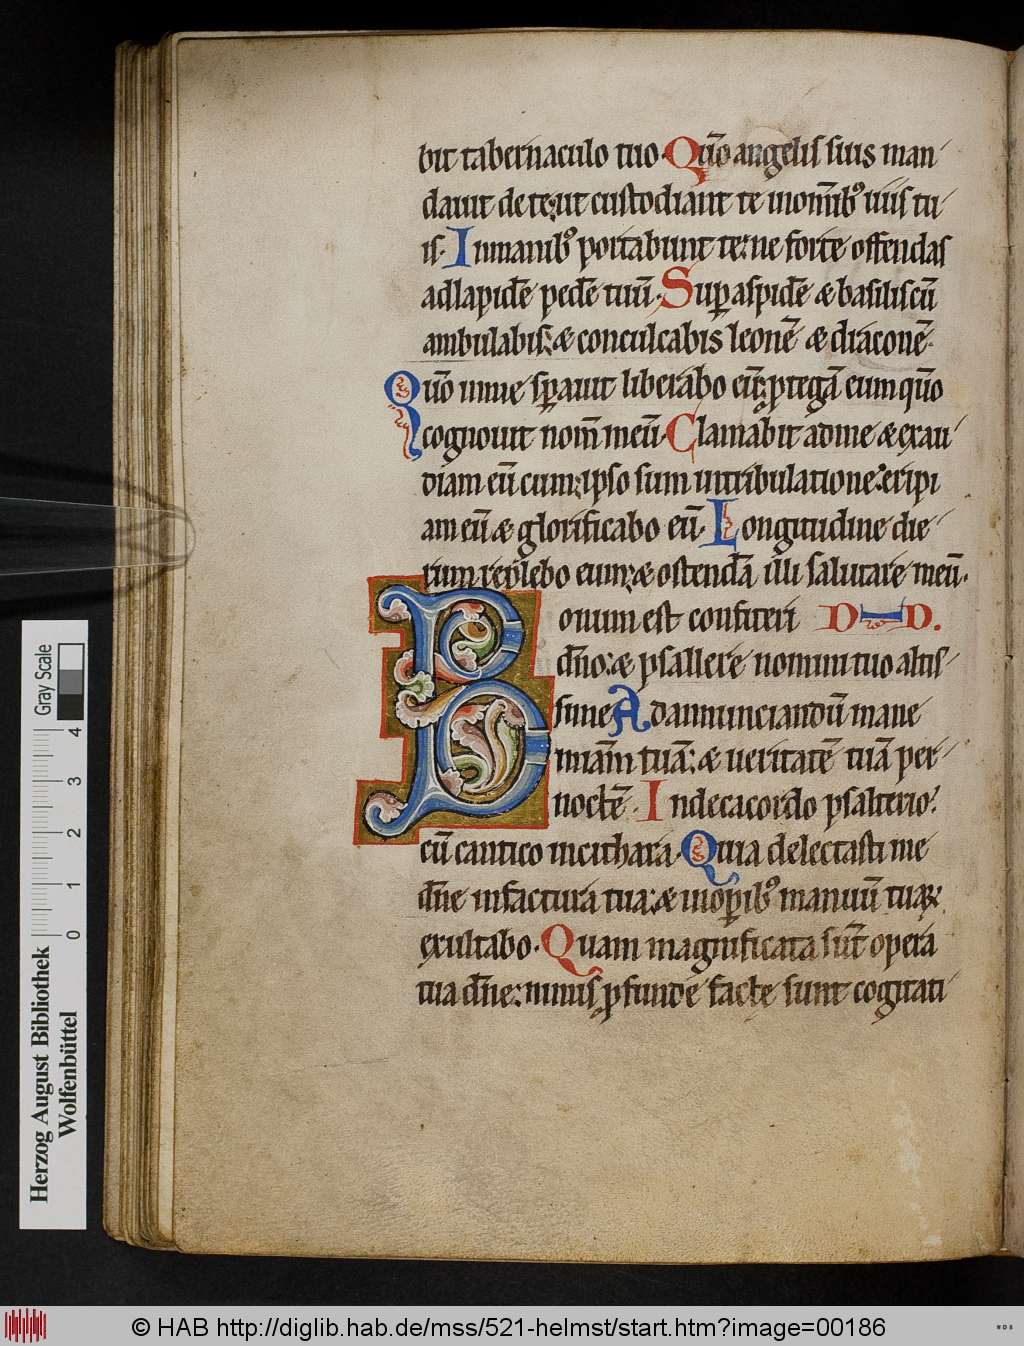 bit tabernaculo tuo. Qm̄o angelis suis man/
dauit de te: ut custodiant te inom̄ib᷒ uiis tu/
is. Inmanib᷒ portabunt te: ne forte offendas
adlapidē pedē tuū. Sup aspidē & basiliscū
ambulabis: & conculcabis leonē & draconē.
Qūo in me sp̄auit liberabo eū: ptegā eum qūo
cognouit nom̄ meū. Clamabit ad me & exau/
diam eū cum ipso sum in tribulatione: eripi
am eū & glorificabo eū. Longitudine die/
rum replebo eum: & ostendā illi salutare meū.
Bonum est confiteri D I D.
dn̄o: & psallere nomini tuo altis/
sime. Adannunciandū mane
miām tuā: & ueritatē tuā per/
noctē. Indecacordo psalterio:
cū cantico incithara. Quia delectasti me
dn̄e infactura tua: & inopib᷒ manuū tuaꝝ
exultabo. Quam magnificata sūt opera
tua dn̄e: nimis pfunde facte sunt cogitati/
Gray Scale
4 3 2 1 0
Herzog August Bibliothek
Wolfenbüttel
© HAB http://diglib.hab.de/mss/521-helmst/start.htm?image=00186
WDB